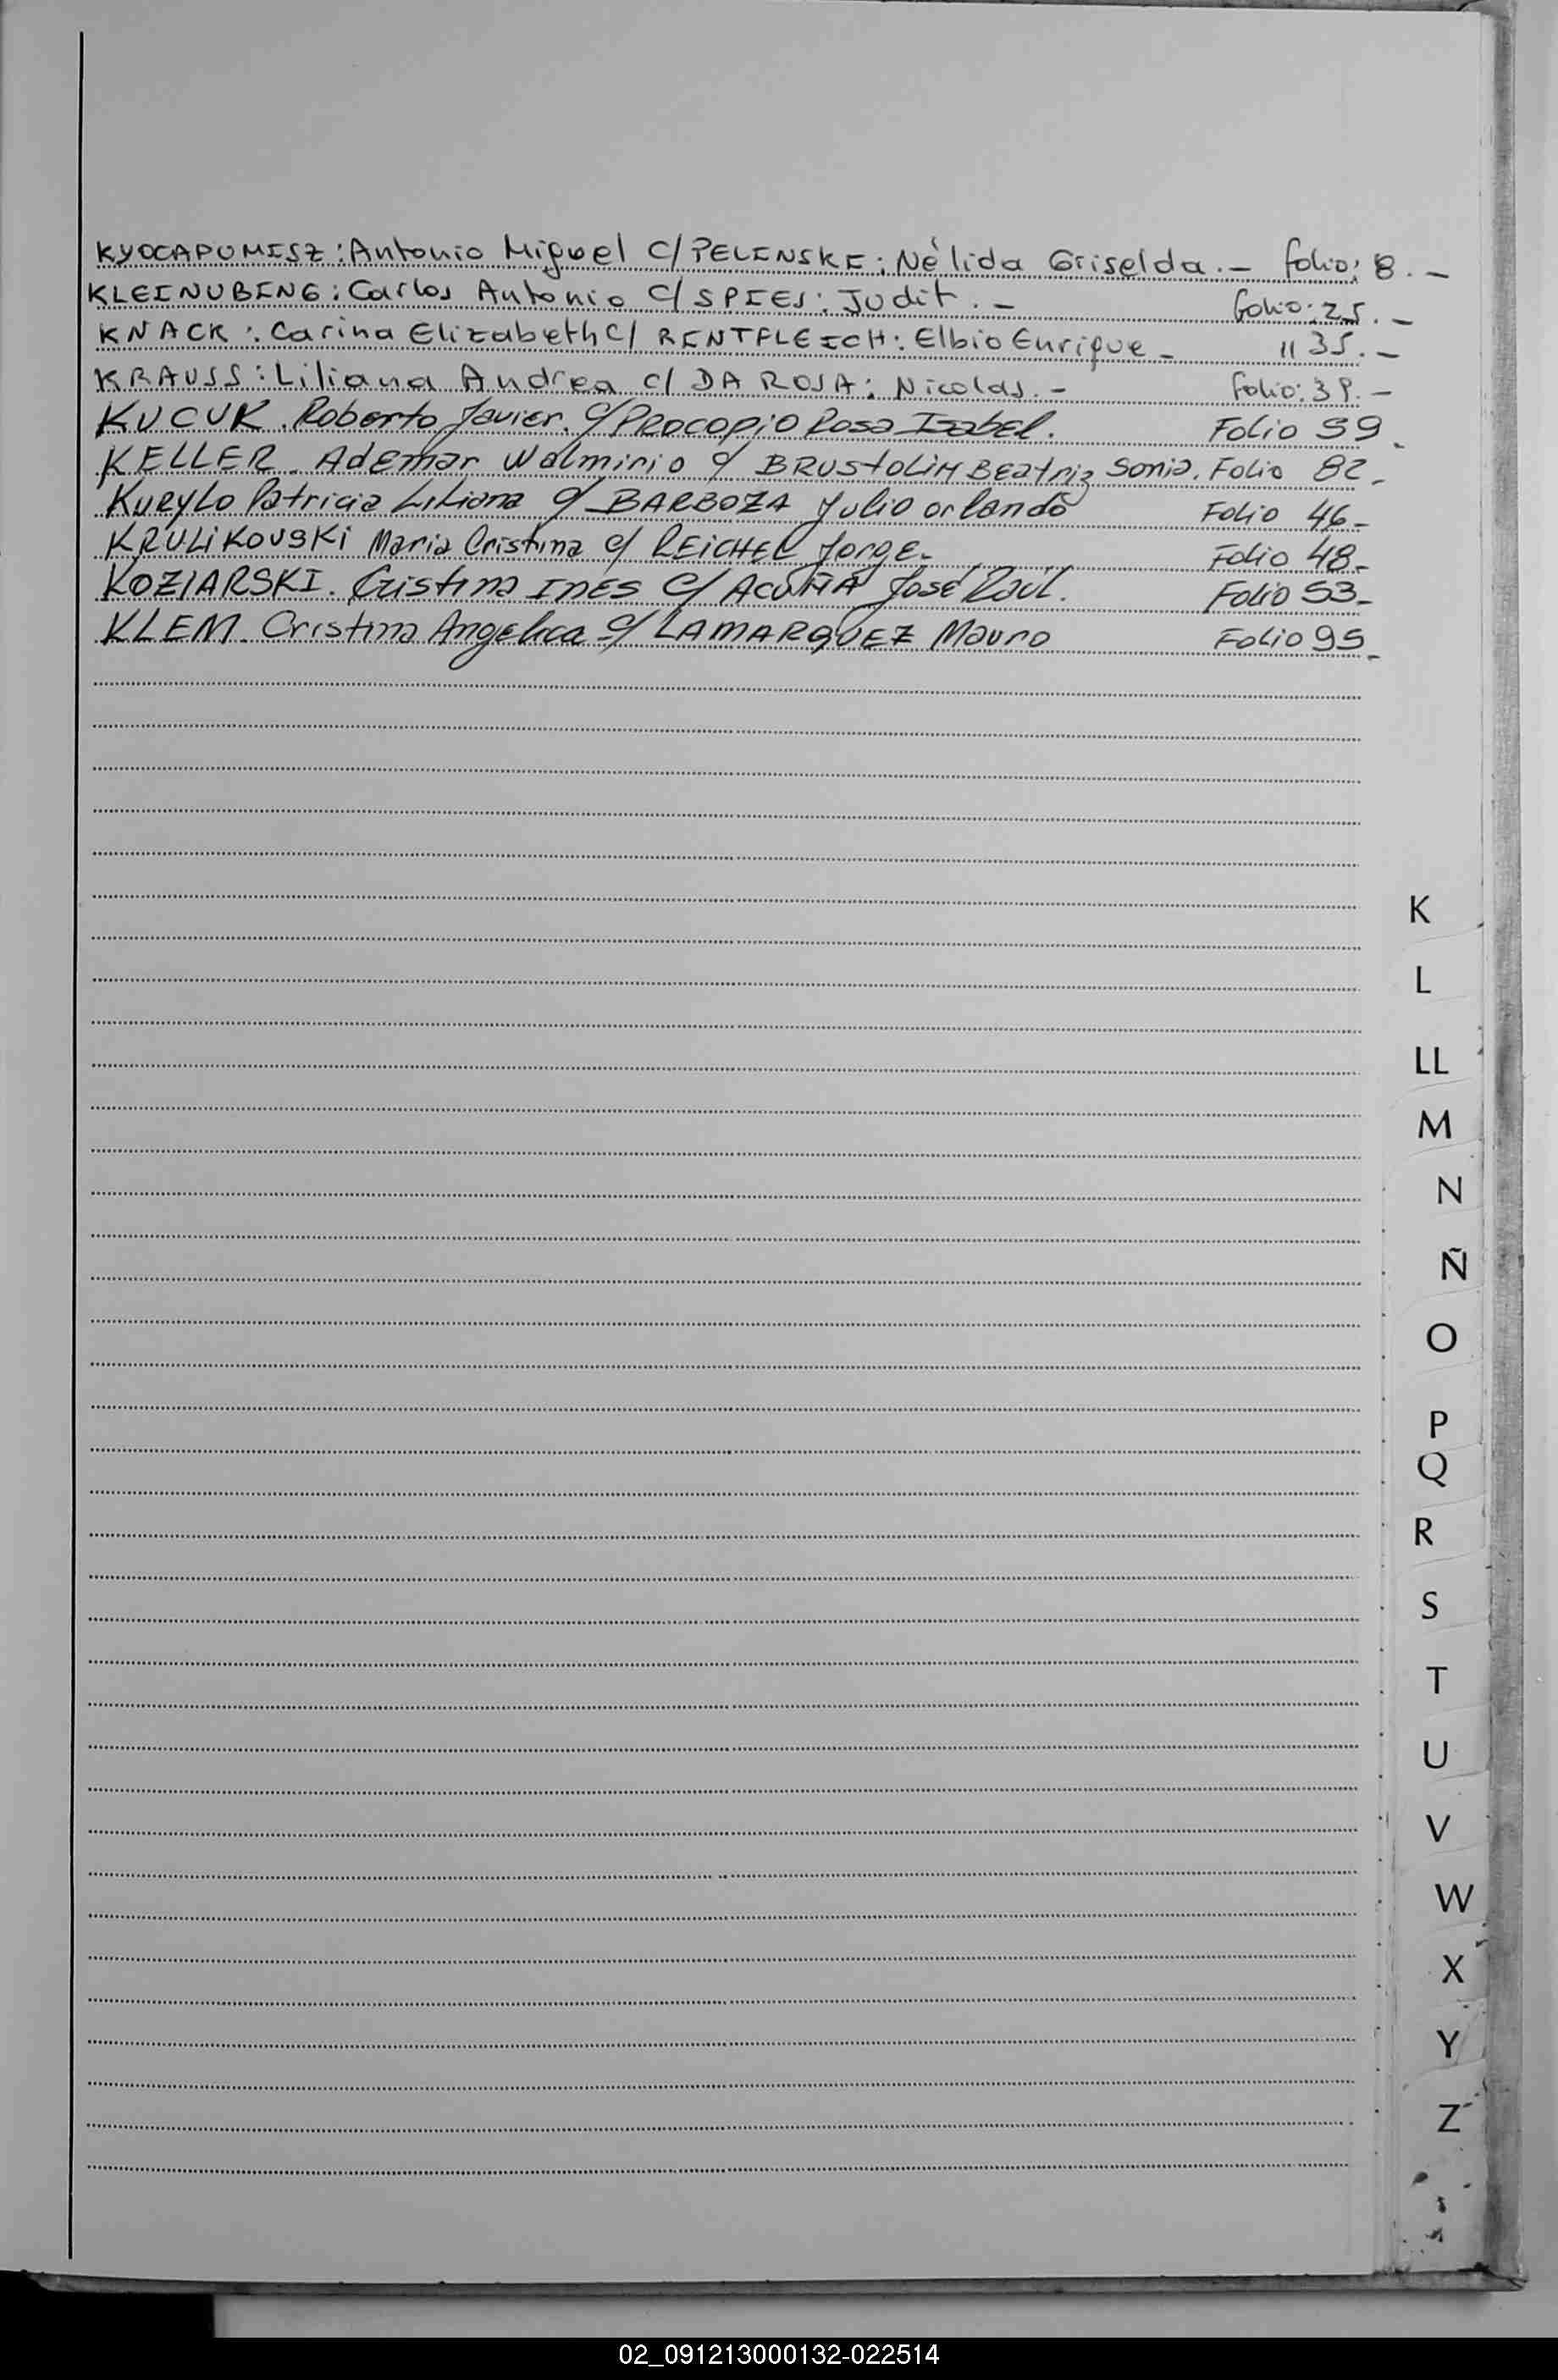 KYOCAPOMISZ: Antonio Miguel C/ PELINSKE: Nélida Griselda.- folio: 8.-
KLEINUBING: Carlos Antonio C/ SPIES: Judit.- folio: 25.-
KNACK: Carina Elizabeth C/ RENTFLEICH: Elbio Enrique - " 35.-
KRAUSS: Liliana Andrea c/ DA ROSA: Nicolas.- folio: 39.-
KUCUK. Roberto Javier. c/ PROCOPIO Rosa Isabel. Folio 59.
KELLER. Ademar Walmirio c/ BRUSTOLIM BEatriz Sonia. Folio 82-
KURYLO Patricia Liliana c/ BARBOZA Julio orlando Folio 46-
KRULIKOUSKI Maria Cristina c/ REICHEL Jorge. Folio 48-
KOZIARSKI. Cristina INES c/ ACUÑA José Raúl. Folio 53-
KLEM. Cristina Angelica c/ LAMARQUEZ Mauro Folio 95-
K
L
LL
M
N
Ñ
O
P
Q
R
S
T
U
V
W
X
Y
Z
02_091213000132-022514